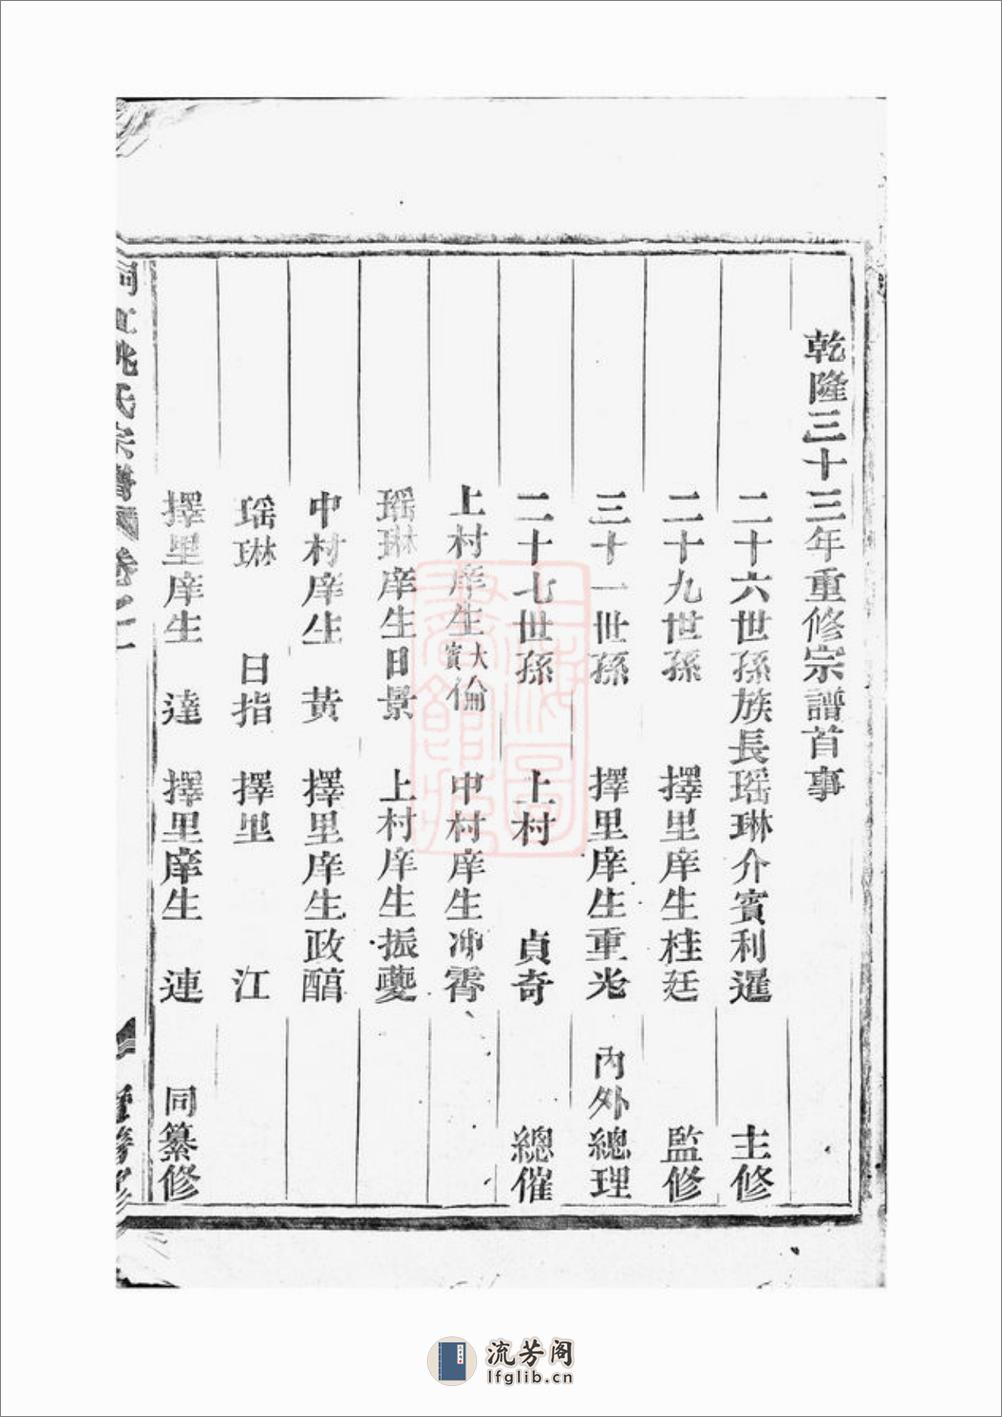 乾隆三十三年重修宗譜首事
二十六世孫族長瑶琳介賓利暹 主修
二十九世孫 擇里庠生桂廷 監修
三十一世孫 擇里庠生重光 內外總理
二十七世孫 上村 貞奇 總催
上村庠生大賓倫 中村庠生冲霄
瑶琳庠生日景 上村庠生振夔
中村庠生 黃 擇里庠生政醕
瑶琳 日指 擇里 江
擇里庠生 達 擇里庠生 連 同纂修
姚氏宗譜 卷之一
上海圖書館藏
流芳阁
lfglib.cn